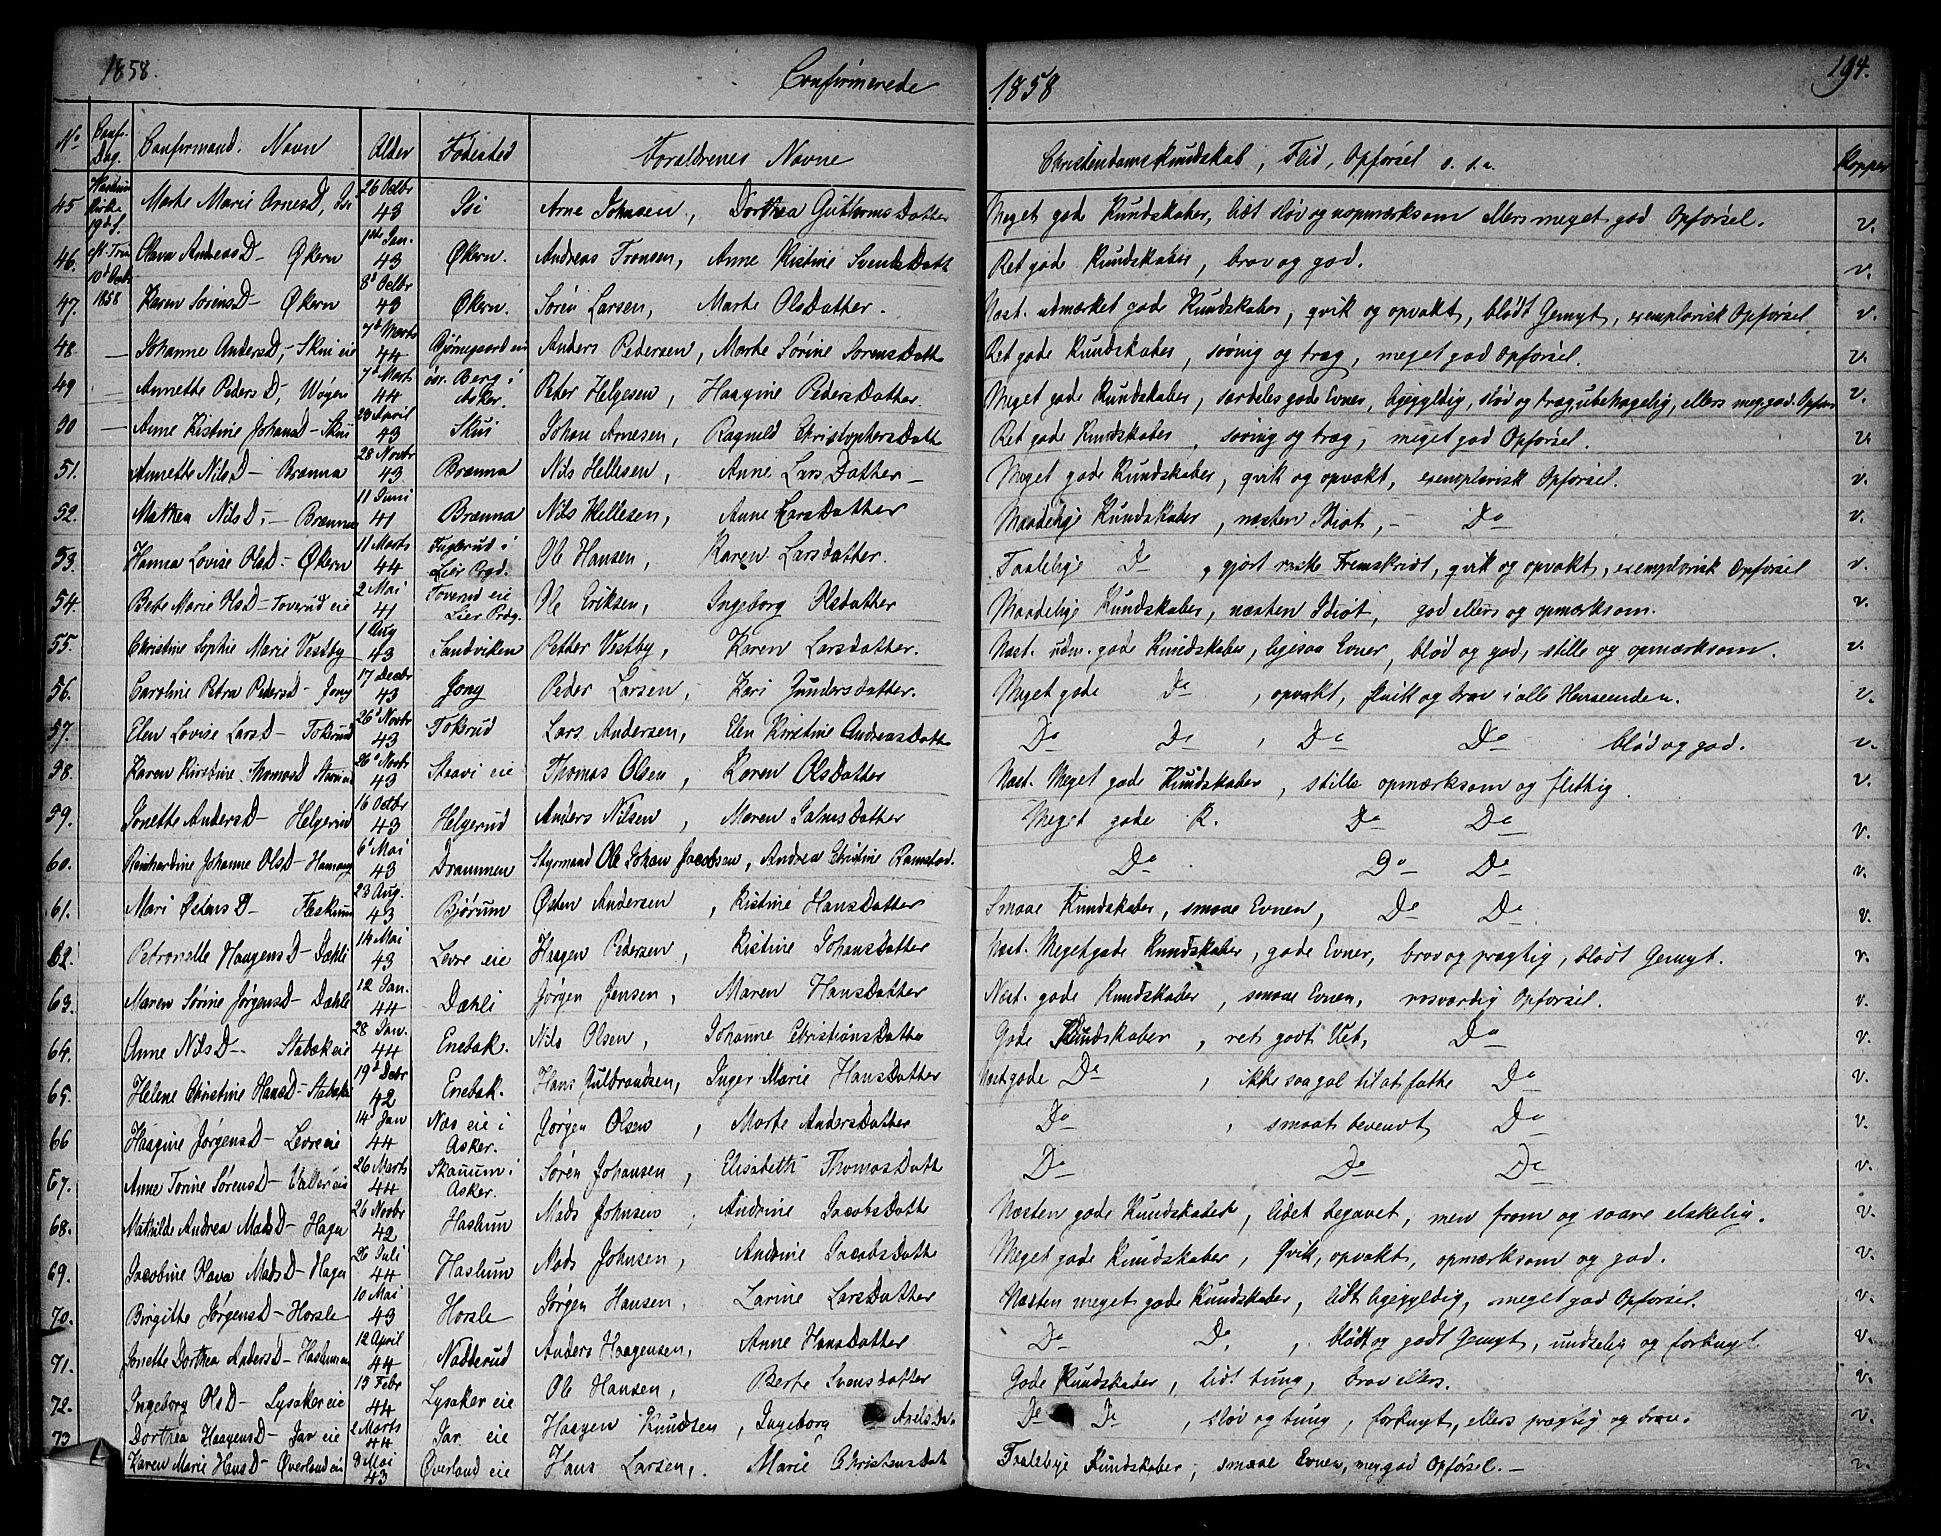 1858. Confirmerede 1858 194.
No. Conf. Dag. Confirmand. Navn Alder Fødested Forældrenes Navne Christendomskundskab, Flid, Opførsel o. s. v. Kopper
45 Haslum Kirke 19de S. Marthe Marie ArnesD, Isi 26 Octbr 43 Isi Arne Johnsen, Dorthea GuttormsDatter Meget gode Kundskaber, lidt sløv og uopmærksom ellers meget god Opførsel. v.
46. eft. Trin 10d Octb. Olava AndreasD- Økern 1ste Jan. 43 Økern. Andreas Tronsen, Anne Kistine SvendsDatt Ret gode Kundskaber, brav og god. v.
47. 1858 Karen SørensD- Økern 8d Octbr 43 Økern. Søren Larsen, Marthe OlsDatter. Næst. udmærket gode Kundskaber, qvik og opvakt, blødt Gemyt, exemplarisk Opførsel v.
48 — Johanne AndersD, - Skui eie 7d Marts 44 Bjørnegaard eie Anders Pedersen, Marthe Sørine SorensDatt Ret gode Kundskaber, søvnig og træg, meget god Opførsel. v.
49 — Annette PedersD, Wøyen 7d Marts 44 østr. Berg i Asker. Peter Helgesen, Haagine PedersDatter Meget gode Kundskaber, særdeles gode Evner, ligegyldig, sløv og træg, ubehagelig, ellers meg. god. Opførs v.
50 — Anne Kistine JohansD - Skui 23 April 43 Skui Johan Arnesen, Ragnild ChristophersDatt Ret gode Kundskaber, søvnig og træg, meget god Opførsel. v
51. Annette NilsD - Brænna 28 Novbr 43 Brænna Nils Hellesen, Anne LarsDatter - Meget gode Kundskaber, qvik og opvakt, exemplarisk Opførsel. v.
52. Mathea NilsD, - Brænna 11 Juni 41 Brænna Nils Hellesen, Anne LarsDatter Maadelige Kundskaber, næsten Idiot, - Do v.
53. Hanna Lovise OlsD - Økern 11 Marts 44 Fuglerud i Lier Prgd. Ole Hansen, Karen Larsdatter. Taalelige Do, gjort raske Fremskridt, qvik og opvakt, exemplarisk Opførsel v.
54. Bethe Marie OlsD - Toverud eie 2 Mai 41 Toverud eie Lier Prdg. Ole Eriksen, Ingeborg Olsdatter Maadelige Kundskaber, næsten Idiot, god ellers og opmærksom. v.
55. Christine Sophie Marie Vestby 1 Aug 43 Sandviken Petter Vestby, Karen Larsdatter. Næst. udm. gode Kundskaber, ligesaa Evner, blød og god, stille og opmærksom. v.
56. Caroline Petra PedersD - Jong 17 Decbr 43 Jong Peder Larsen, Kari Gundersdatter. Meget gode Do, opvakt, qvik og brav i alle Henseender. v.
57. Elen Lovise LarsD - Tokerud 26d Novbr 43 Tokerud Lars Andersen, Elen Kirstine AndreasDatt Do Do, Do Do blød og god. v.
58. Karen Kirstine ThomasD Stavi eie 26d Novbr 43 Steavi eie Thomas Olsen, Karen OlsDatter Næst. Meget gode Kundskaber, stille opmærksom og flittig. v.
59. Jonette AndersD - Helgerud 16 Octbr 43 Helgerud Anders Nilsen, Maren SalmsDatter Meget gode K. Do Do v.
60. Reinhardine Johanne OlsD - Hamang 6d Mai 43 Drammen Styrmand Ole Johan Jacobsen, Andrea Christine Ramstad. Do Do Do v.
61. Mari ØstensD - Fleskum 23 Aug. 43 Bjørum Østen Andersen, Kistine HansDatter Smaae Kundskaber, smaae Evnen, Do Do v.
62. Petronelle HaagensD - Dæhli 14 Mai 43 Levre eie Haagen Pedersen, Kistine JohansDatter Næst. Meget gode Kundskaber, gode Evner, brav og prægtig, blødt Gemyt. v.
63. Maren Sørine JørgensD - Dæhli 12 Jan. 44 Dæhli Jørgen Jensen, Maren HansDatter Næst. gode Kundskaber, smaae Evnen, rosværdig Opførsel. v.
64. Anne NilsD - Stabæk eie 28 Jan. 44 Enebak. Nils Olsen, Johanne ChristiansDatter Gode Kundskaber, ret godt Vet, Do v.
65. Helene Christine HansD - Stabæk 19d Decbr 42 Enebak. Hans Gulbrandsen, Inger Marie HansDatter Næst gode Do, ikke saa gal til at fatte Do v.
66 Haagine JørgensD - Levre eie 14d Jan 44 Næs eie i Asker. Jørgen Olsen, Marthe AndersDatter Do, smaat bevendt Do v.
67. Anne Torine SørensD - Valler eie 26 Marts 44 Skauum i Asker. Søren Johansen, Elisabeth ThomasDatt Do Do Do v.
68. Mathilde Andrea MadsD - Haga 26 Novbr 42 Haslum Mads Johnsen, Andrine JacobsDatt Næsten gode Kundskaber, lidet begavet, men from og saare elskelig. v.
69. Jacobine Olava MadsD - Haga 26 Juli 44 Haslum Mads Johnsen, Andrine JacobsDatt Meget gode Kundskaber, qvik, opvakt, opmærksom og god. v.
70. Birgitte JørgensD - Horsle 10 Mai 43 Horsle Jørgen Hansen, Larine LarsDatter Næsten meget gode Kundskaber, lidt ligegyldig, meget god Opførsel. v.
71. Jonette Dorthea AndersD - Haslum 12 April 44 Nadderud Anders Haagensen, Anne HansDatter Do Do, blødt og godt Gemyt, undselig og forknyt v.
72. Ingeborg OlsD - Lysaker eie 15 Febr 44 Lysaker eie Ole Hansen, Berte SvensDatter Gode Kundskaber, lidt tung, brav ellers. v.
73 Dorthea HaagensD - Jar eie 2 Marts 44 Jar eie Haagen Knudsen, Ingeborg AxelsDa. Do Do, sløv og tung, forknyt, ellers prægtig og brav. v.
Karen Marie HansD - Øverland eie 9 Mai 43 Øverland eie Hans Larsen, Marie ChristensDat Taalelige Kundskaber, smaae Evnen, meg. god Opførsel. - v.